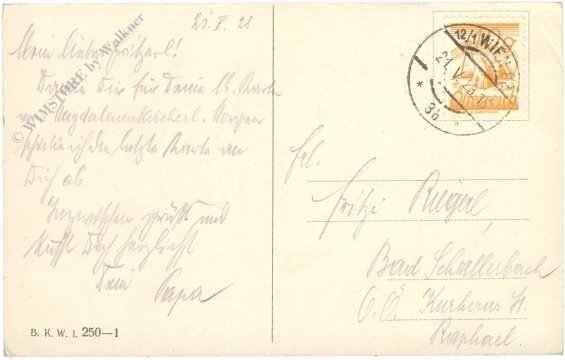 21. V. 28
Mein liebes Fritzerl!
Danke Dir für Deine lb. Karte
Magdalenenkircherl. Morgen
schicke ich die letzte Karte an
Dich ab.
Inzwischen grüßt und
küsst Dich herzlichst
Dein Papa
B. K. W. I. 250—1
© WIMSTORE by Walkner
12/1 WIEN
21. V. 28
* 3b *
Österreich
Frl.
Fritzi Riegerl,
Bad Schallerbach
O.Ö. Kurhaus St.
Raphael.